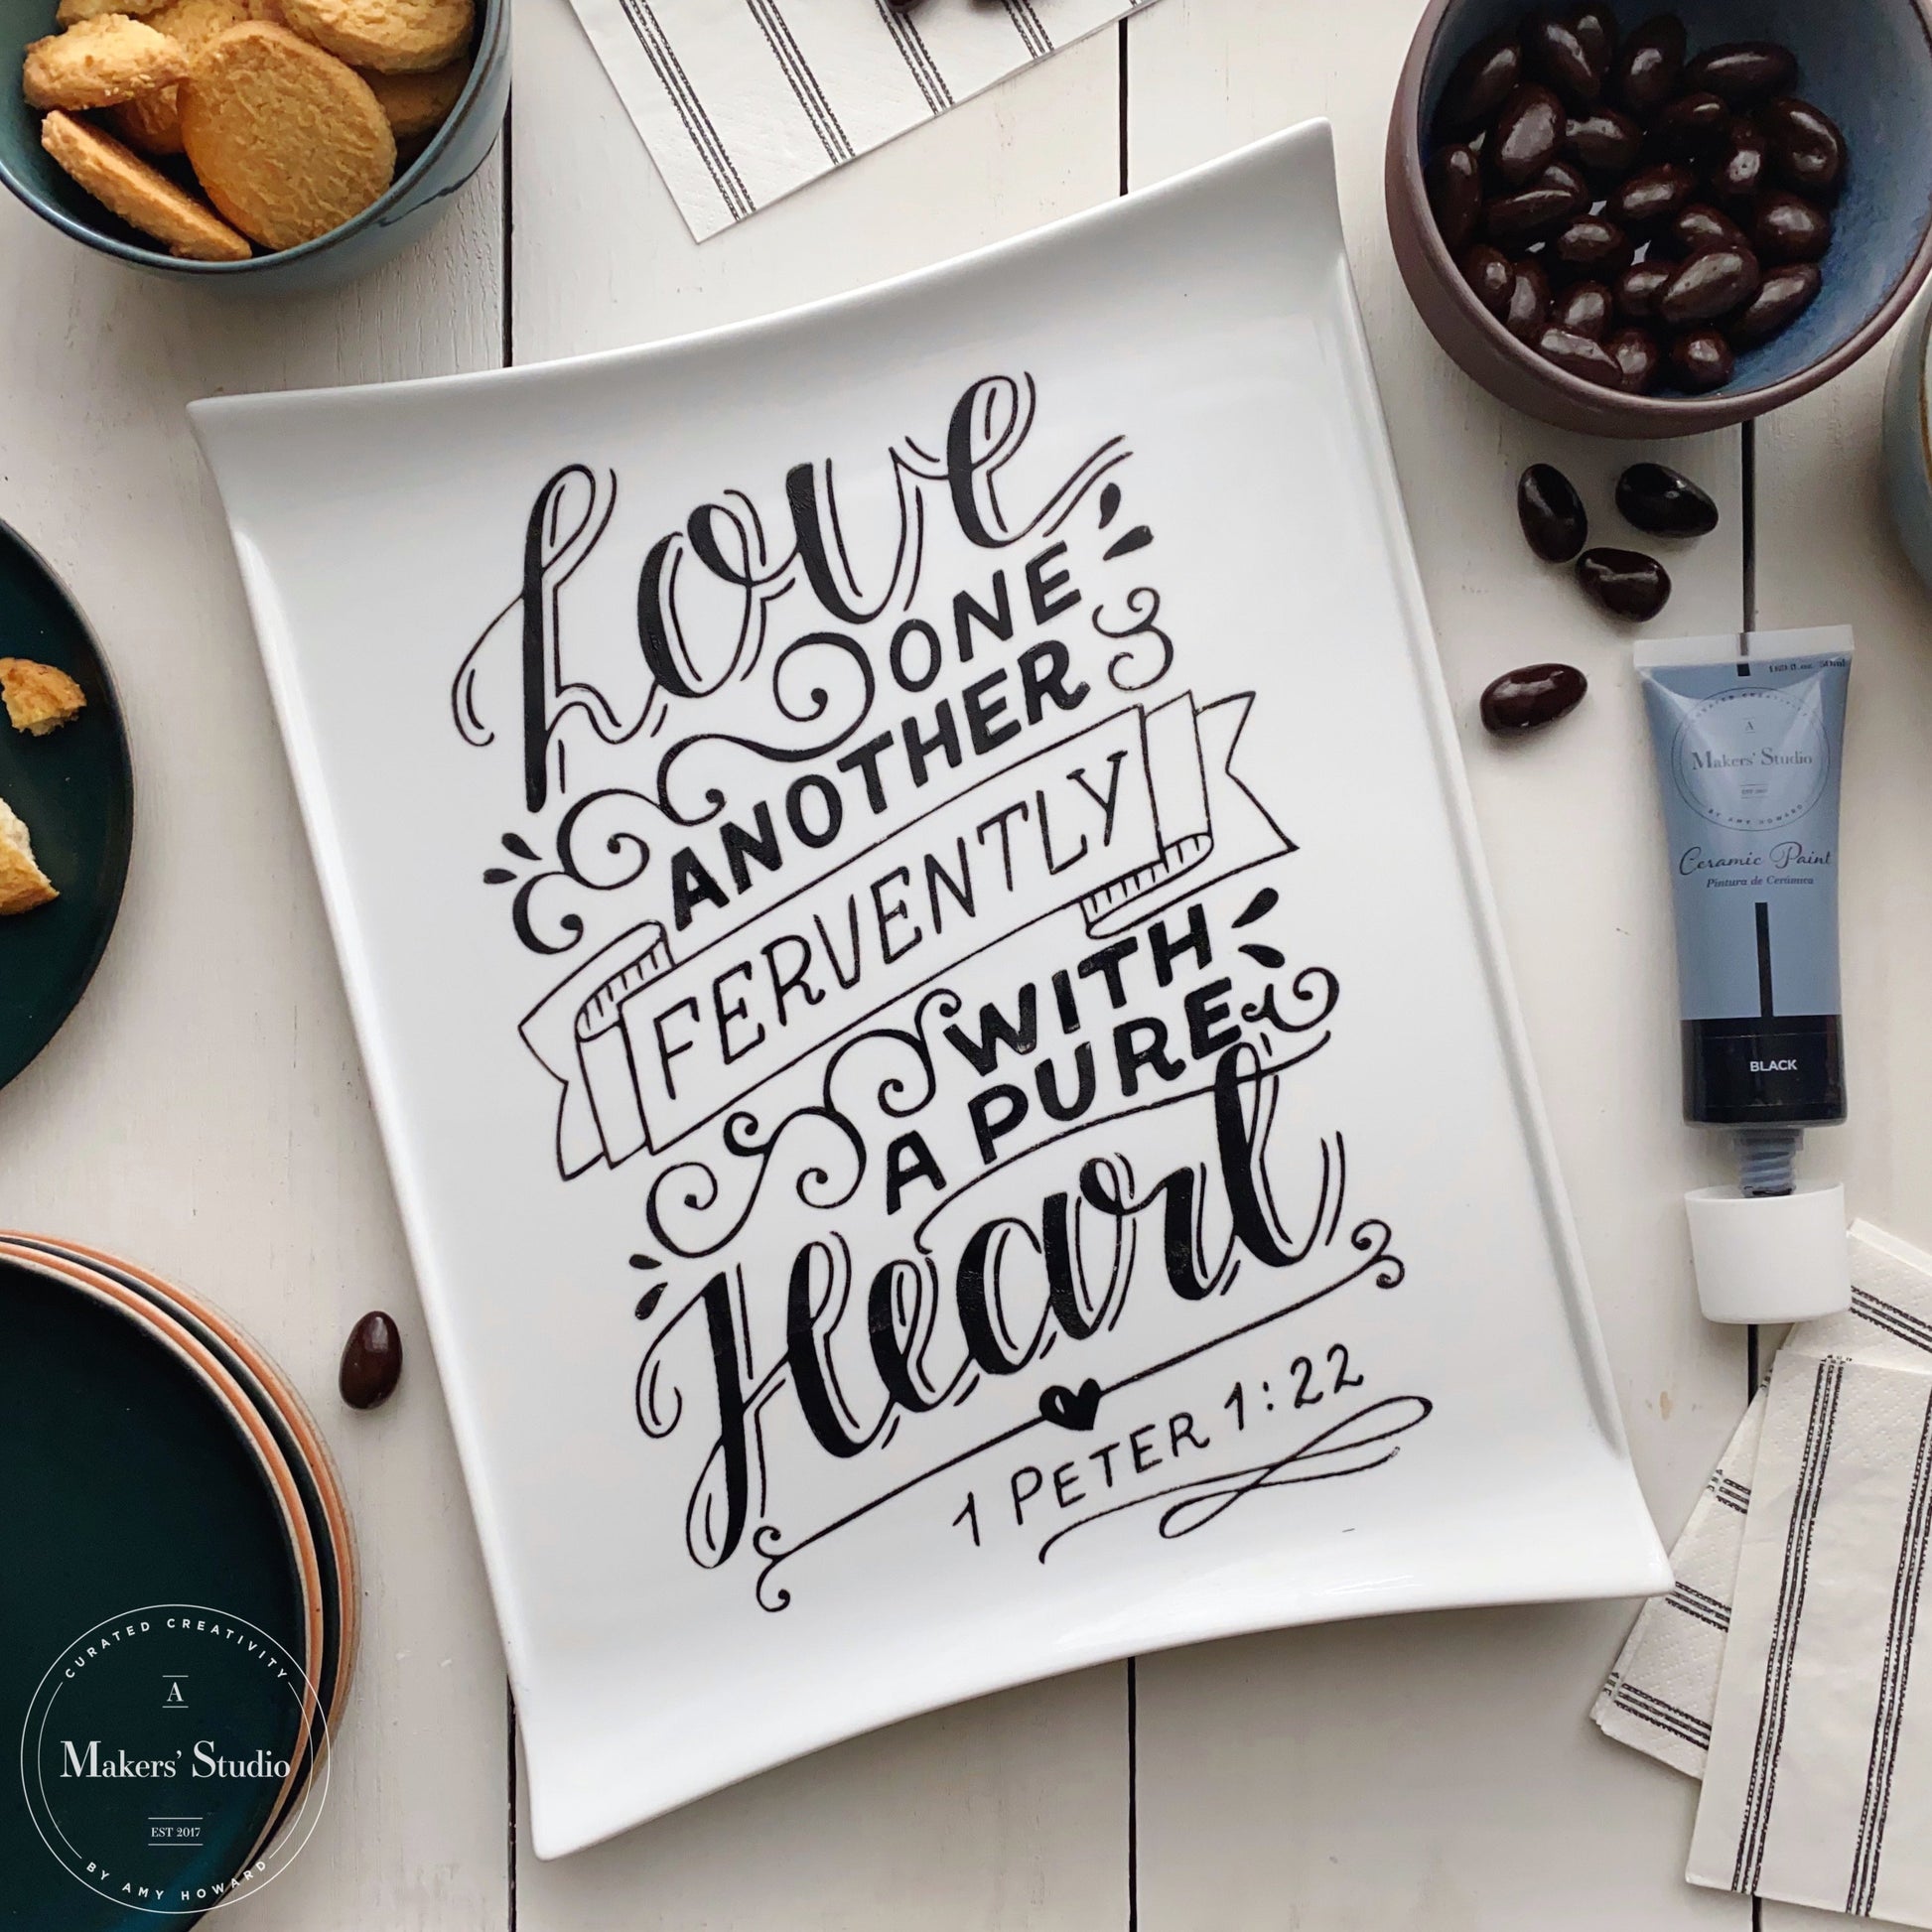 Love
ONE
ANOTHER
FERVENTLY
WITH
A PURE
Heart
1 PETER 1:22
A
Makers' Studio
EST 2017
BY AMY HOWARD
Ceramic Paint
Pintura de Cerámica
BLACK
CURATED CREATIVITY
A
Makers' Studio
EST 2017
BY AMY HOWARD